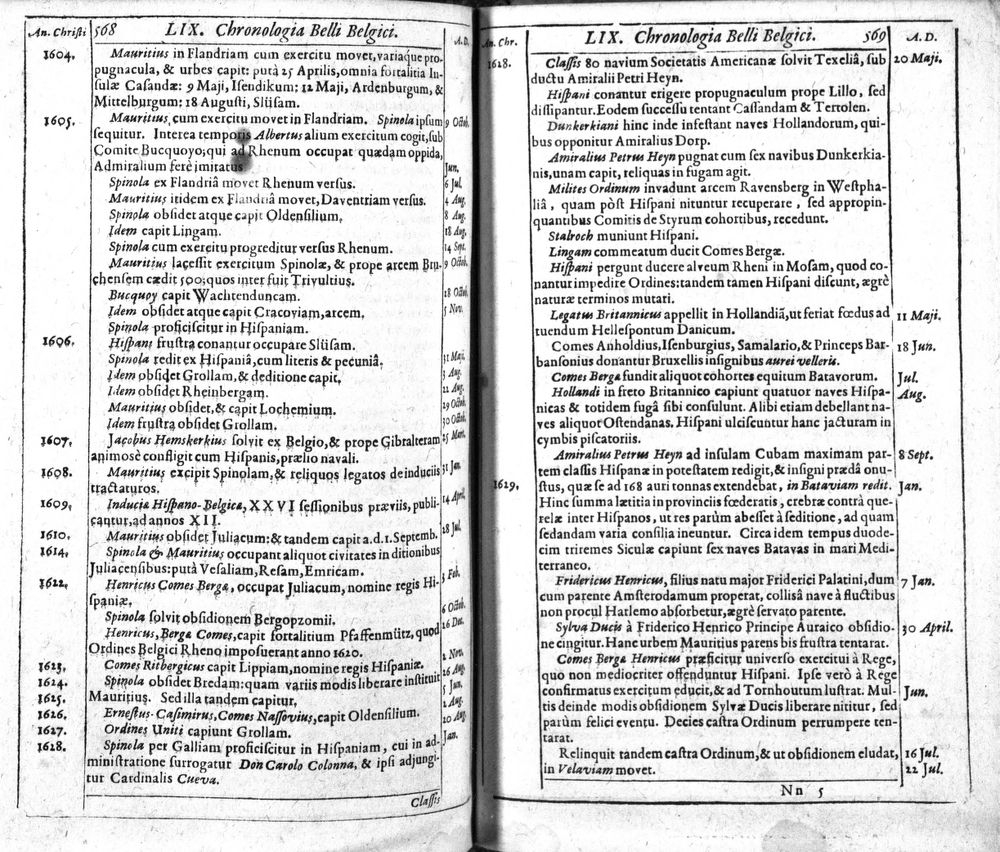 An. Christi 568 LIX. Chronologia Belli Belgici. A.D.
1604. Mauritius in Flandriam cum exercitu movet, variaque pro-
pugnacula, & urbes capit: putà 25 Aprilis, omnia fortalitia In-
sulæ Casandæ: 9 Maji, Isendikum: 12 Maji, Ardenburgum, &
Mittelburgum: 18 Augusti, Slüsam.
1605. Mauritius, cum exercitu movet in Flandriam. Spinola ipsum 9 Octob.
sequitur. Interea temporis Albertus alium exercitum cogit, sub
Comite Bucquoyo; qui ad Rhenum occupat quædam oppida,
Admiralium ferè imitatus Jun.
Spinola ex Flandriâ movet Rhenum versus. 6 Jul.
Mauritius itidem ex Flandriâ movet, Daventriam versus. 4 Aug.
Spinola obsidet atque capit Oldensilium, 8 Aug.
Idem capit Lingam. 18 Aug.
Spinola cum exercitu progreditur versus Rhenum. 14 Sept.
Mauritius lacessit exercitum Spinolæ, & prope arcem Bru- 9 Octob.
chensem cædit 500; quos inter fuit Trivultius.
Bucquoy capit Wachtenduncam. 28 Octob.
Idem obsidet atque capit Cracoviam, arcem, 5 Nov.
Spinola proficiscitur in Hispaniam.
1606. Hispani frustra conantur occupare Slüsam.
Spinola redit ex Hispaniâ, cum literis & pecuniâ, 31 Maji.
Idem obsidet Grollam, & deditione capit, 3 Aug.
Idem obsidet Rheinbergam. 22 Aug.
Mauritius obsidet, & capit Lochemium. 29 Octob.
Idem frustra obsidet Grollam. 30 Octob.
1607. Jacobus Hemskerkius solvit ex Belgio, & prope Gibralteram 25 Mart.
animosè confligit cum Hispanis, prælio navali.
1608. Mauritius excipit Spinolam, & reliquos legatos de induciis 31 Jan.
tractaturos.
1609. Induciæ Hispano-Belgicæ, XXVI sessionibus præviis, publi- 14 April.
cantur, ad annos XII.
1610. Mauritius obsidet Juliacum: & tandem capit a. d. 1. Septemb. 28 Jul.
1614. Spinola & Mauritius occupant aliquot civitates in ditionibus
Juliacensibus: putà Vesaliam, Resam, Emricam.
1622. Henricus Comes Bergæ, occupat Juliacum, nomine regis Hi- 3 Feb.
spaniæ,
Spinola solvit obsidionem Bergopzomii. 6 Octob.
Henricus, Bergæ Comes, capit fortalitium Pfaffenmütz, quod 26 Dec.
Ordines Belgici Rheno imposuerant anno 1620.
1623. Comes Ritbergicus capit Lippiam, nomine regis Hispaniæ. 2 Nov.
1624. Spinola obsidet Bredam: quam variis modis liberare instituit 26 Aug.
1625. Mauritius. Sed illa tandem capitur, 5 Jun.
1626. Ernestus-Casimirus, Comes Nassovius, capit Oldensilium. 2 Aug.
1627. Ordines Uniti capiunt Grollam. 20 Aug.
1628. Spinola per Galliam proficiscitur in Hispaniam, cui in ad- Jan.
ministratione surrogatur Don Carolo Colonna, & ipsi adjungi-
tur Cardinalis Cueva.
Classis
An. Chr. LIX. Chronologia Belli Belgici. 569 A.D.
1628. Classis 80 navium Societatis Americanæ solvit Texeliâ, sub 20 Maji.
ductu Amiralii Petri Heyn.
Hispani conantur erigere propugnaculum prope Lillo, sed
dissipantur. Eodem successu tentant Cassandam & Tertolen.
Dunkerkiani hinc inde infestant naves Hollandorum, qui-
bus opponitur Amiralius Dorp.
Amiralius Petrus Heyn pugnat cum sex navibus Dunkerkia-
nis, unam capit, reliquas in fugam agit.
Milites Ordinum invadunt arcem Ravensberg in Westpha-
liâ, quam pòst Hispani nituntur recuperare, sed appropin-
quantibus Comitis de Styrum cohortibus, recedunt.
Stalroch muniunt Hispani.
Lingam commeatum ducit Comes Bergæ.
Hispani pergunt ducere alveum Rheni in Mosam, quod co-
nantur impedire Ordines: tandem tamen Hispani discunt, ægrè
naturæ terminos mutari.
Legatus Britannicus appellit in Hollandiâ, ut feriat fœdus ad 11 Maji.
tuendum Hellespontum Danicum.
Comes Anholdius, Isenburgius, Samalario, & Princeps Bar- 18 Jun.
bansonius donantur Bruxellis insignibus aurei velleris.
Comes Bergæ fundit aliquot cohortes equitum Batavorum. Jul.
Hollandi in freto Britannico capiunt quatuor naves Hispa- Aug.
nicas & totidem fugâ sibi consulunt. Alibi etiam debellant na-
ves aliquot Ostendanas. Hispani ulciscuntur hanc jacturam in
cymbis piscatoriis.
Amiralius Petrus Heyn ad insulam Cubam maximam par- 8 Sept.
tem classis Hispanæ in potestatem redigit, & insigni prædâ onu-
1629. stus, quæ se ad 168 auri tonnas extendebat, in Bataviam redit. Jan.
Hinc summa lætitia in provinciis fœderatis, crebræ contrà que-
relæ inter Hispanos, ut res parùm abesset à seditione, ad quam
sedandam varia consilia ineuntur. Circa idem tempus duode-
cim triremes Siculæ capiunt sex naves Batavas in mari Medi-
terraneo.
Fridericus Henricus, filius natu major Friderici Palatini, dum 7 Jan.
cum parente Amsterodamum properat, collisâ nave à fluctibus
non procul Harlemo absorbetur, ægrè servato parente.
Sylva Ducis à Friderico Henrico Principe Auraico obsidio- 30 April.
ne cingitur. Hanc urbem Mauritius parens bis frustra tentarat.
Comes Bergæ Henricus præficitur universo exercitui à Rege,
quo non mediocriter offenduntur Hispani. Ipse verò à Rege
confirmatus exercitum educit, & ad Tornhoutum lustrat. Mul- Jun.
tis deinde modis obsidionem Sylvæ Ducis liberare nititur, sed
parùm felici eventu. Decies castra Ordinum perrumpere ten-
tarat.
Relinquit tandem castra Ordinum, & ut obsidionem eludat, 16 Jul.
in Velaviam movet. 22 Jul.
Nn 5